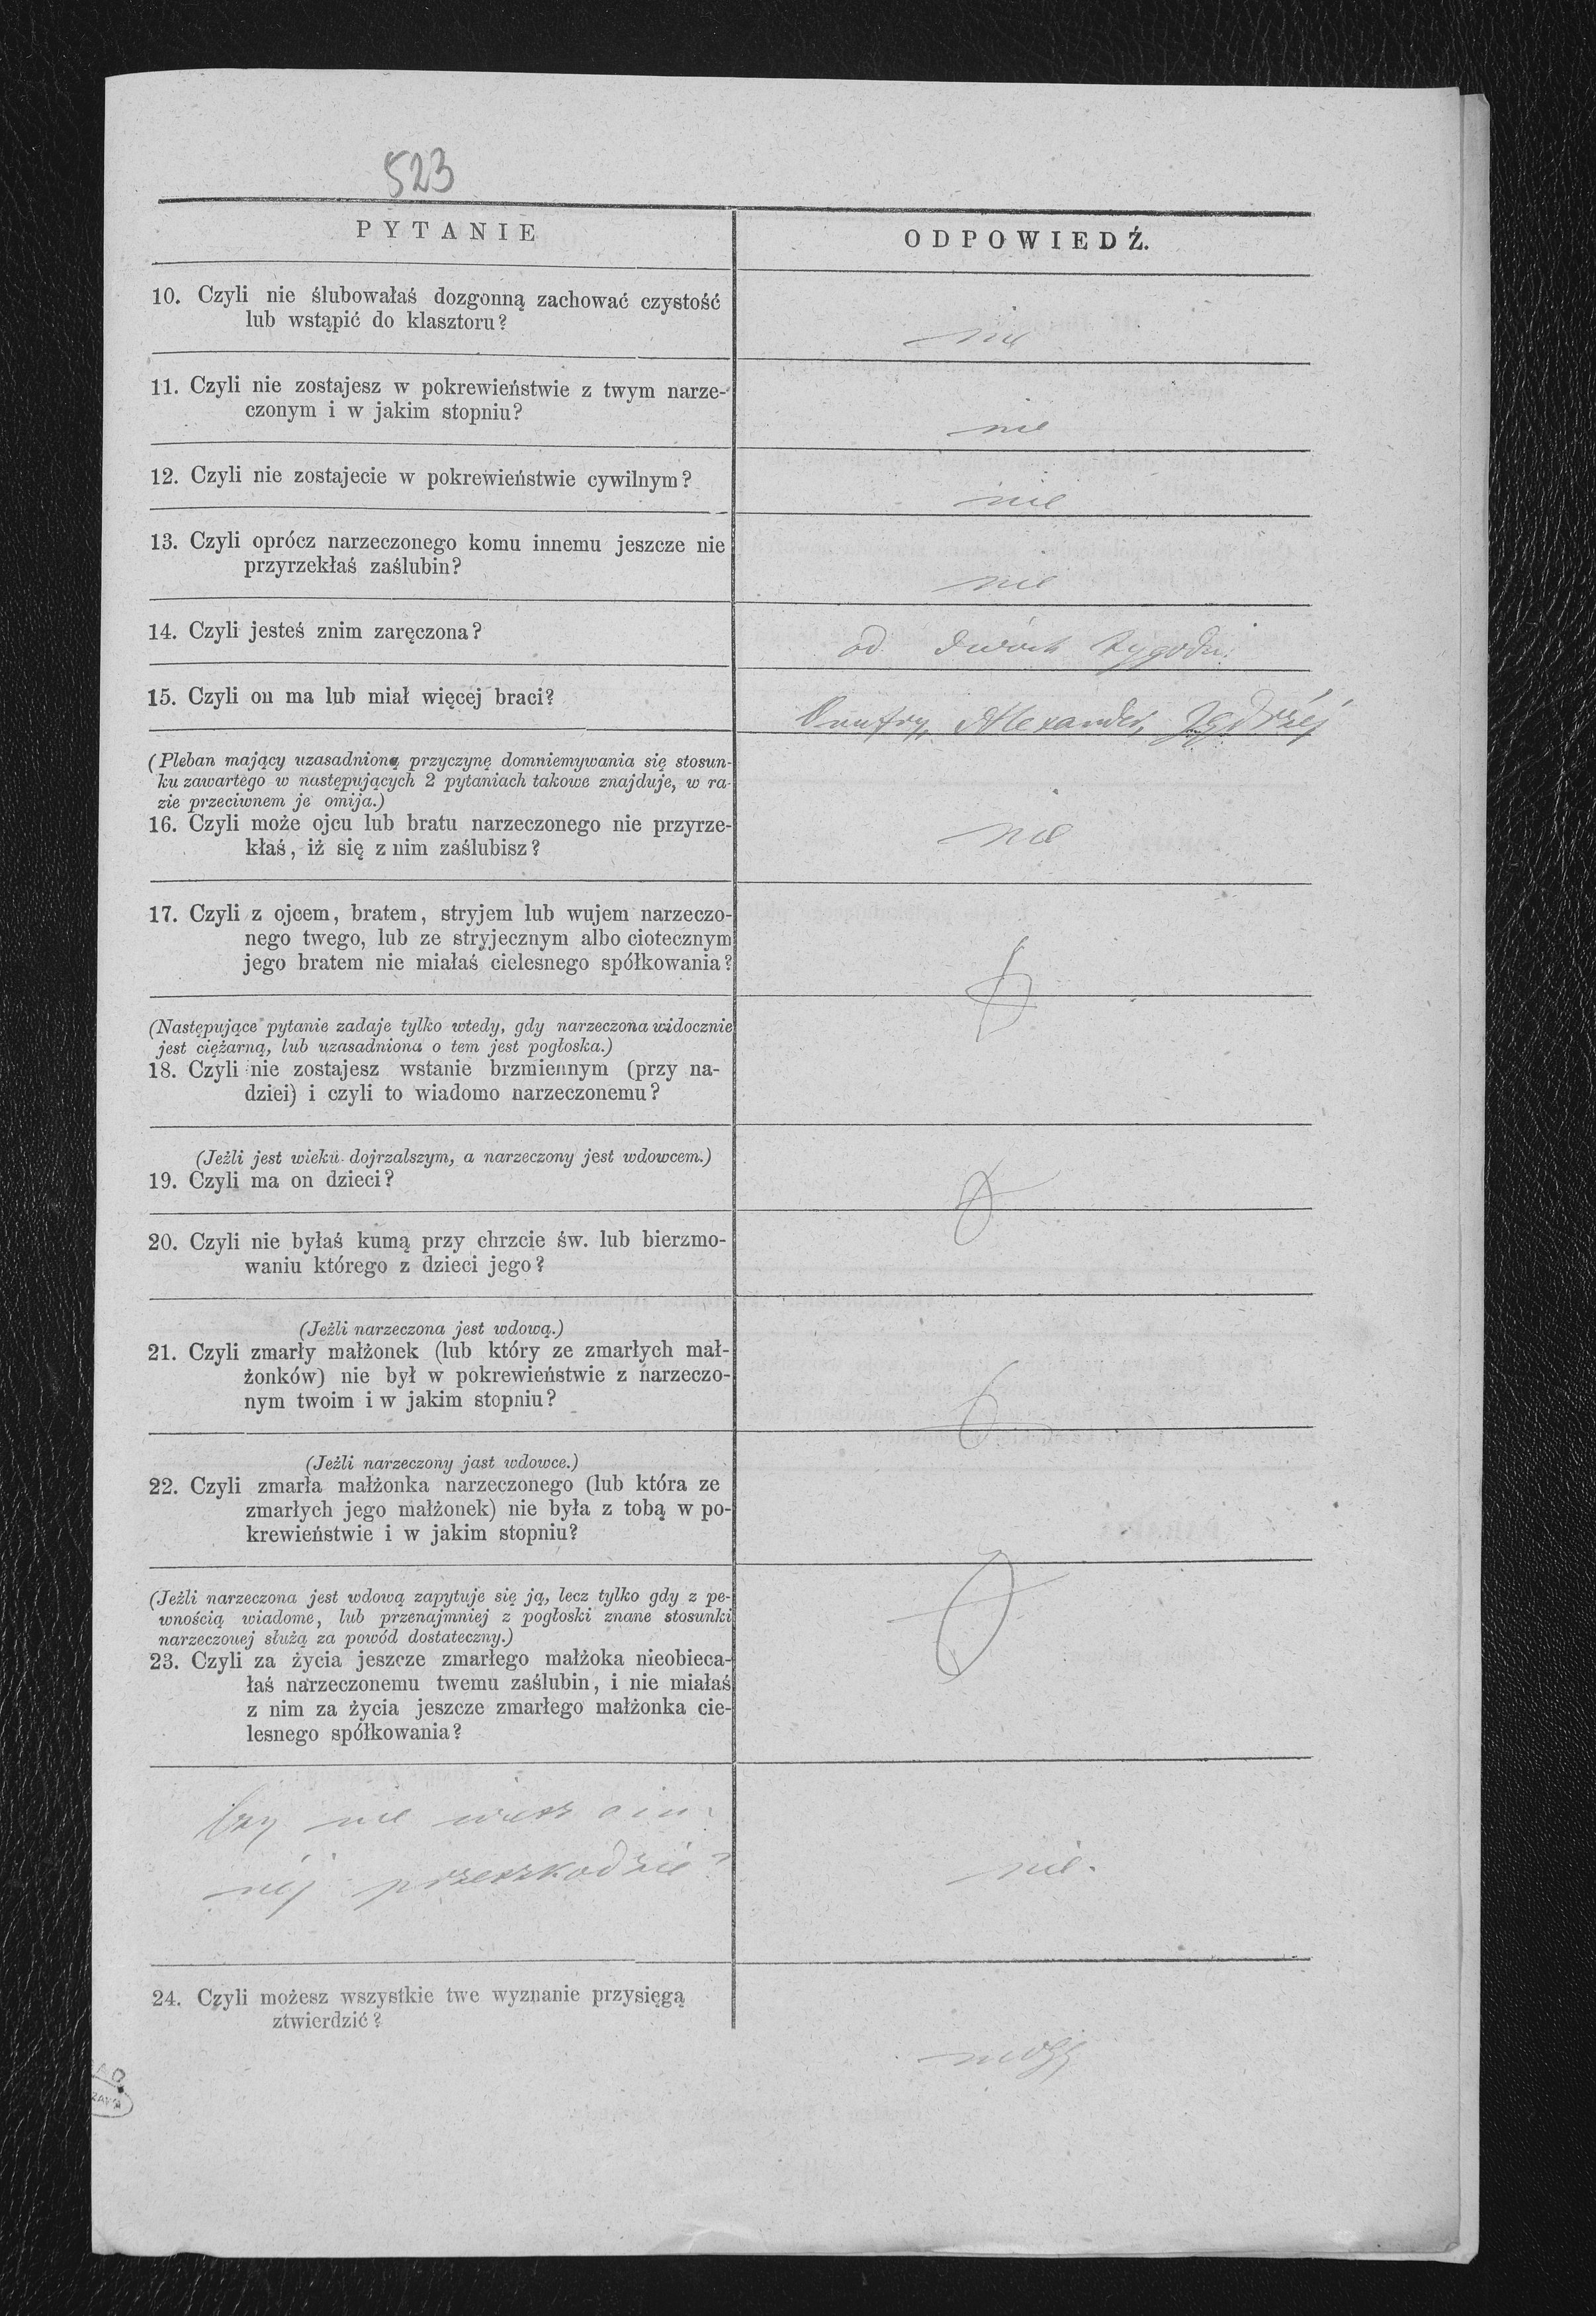 523
PYTANIE
ODPOWIEDŹ.
10. Czyli nie ślubowałaś dozgonną zachować czystość
lub wstąpić do klasztoru?
nie
11. Czyli nie zostajesz w pokrewieństwie z twym narze-
czonym i w jakim stopniu?
nie
12. Czyli nie zostajecie w pokrewieństwie cywilnym?
nie
13. Czyli oprócz narzeczonego komu innemu jeszcze nie
przyrzekłaś zaślubin?
nie
14. Czyli jesteś znim zaręczona?
od dwóch tygodni
15. Czyli on ma lub miał więcej braci?
Onufry, Alexander, Jędrzéj
(Pleban mający uzasadnioną przyczynę domniemywania się stosun-
ku zawartego w następujących 2 pytaniach takowe znajduje, w ra-
zie przeciwnem je omija.)
16. Czyli może ojcu lub bratu narzeczonego nie przyrze-
kłaś, iż się z nim zaślubisz?
nie
17. Czyli z ojcem, bratem, stryjem lub wujem narzeczo-
nego twego, lub ze stryjecznym albo ciotecznym
jego bratem nie miałaś cielesnego spółkowania?
(Następujące pytanie zadaje tylko wtedy, gdy narzeczona widocznie
jest ciężarną, lub uzasadniona o tem jest pogłoska.)
18. Czyli nie zostajesz wstanie brzmiennym (przy na-
dziei) i czyli to wiadomo narzeczonemu?
(Jeżli jest wieku dojrzalszym, a narzeczony jest wdowcem.)
19. Czyli ma on dzieci?
20. Czyli nie byłaś kumą przy chrzcie św. lub bierzmo-
waniu którego z dzieci jego?
(Jeżli narzeczona jest wdową.)
21. Czyli zmarły małżonek (lub który ze zmarłych mał-
żonków) nie był w pokrewieństwie z narzeczo-
nym twoim i w jakim stopniu?
(Jeżli narzeczony jast wdowce.)
22. Czyli zmarła małżonka narzeczonego (lub która ze
zmarłych jego małżonek) nie była z tobą w po-
krewieństwie i w jakim stopniu?
(Jeżli narzeczona jest wdową zapytuje się ją, lecz tylko gdy z pe-
wnością wiadome, lub przenajmniej z pogłoski znane stosunki
narzeczouej służą za powód dostateczny.)
23. Czyli za życia jeszcze zmarłego małżoka nieobieca-
łaś narzeczonemu twemu zaślubin, i nie miałaś
z nim za życia jeszcze zmarłego małżonka cie-
lesnego spółkowania?
Czy nie wiesz o in-
néj przeszkodzie?
nie.
24. Czyli możesz wszystkie twe wyznanie przysięgą
ztwierdzić?
mogę